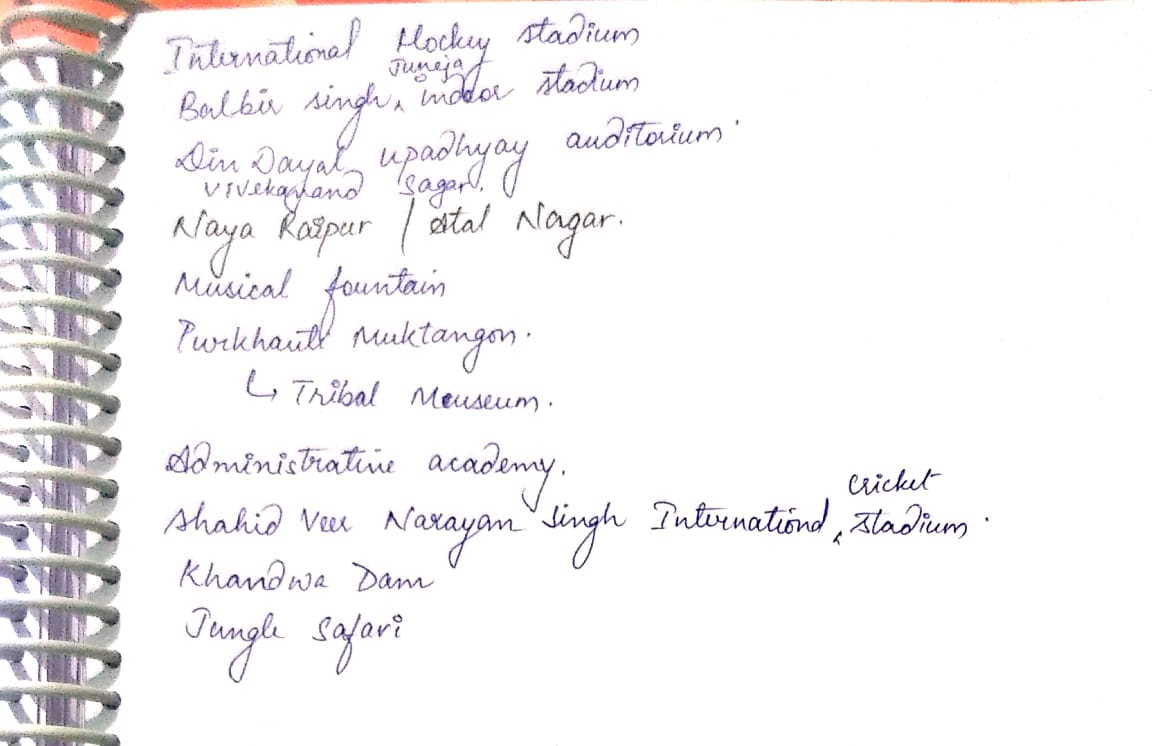 International Hockey Stadium
Juneja
Balbir singh ^ indoor stadium
Din Dayal upadhyay auditorium.
Vivekanand Sagar.
Naya Raipur / Atal Nagar.
Musical fountain
Purkhauti Muktangon.
↳ Tribal Meuseum.
Administrative academy.
cricket
Shahid Veer Narayan Singh International ^ Stadium.
Khandwa Dam
Jungle Safari